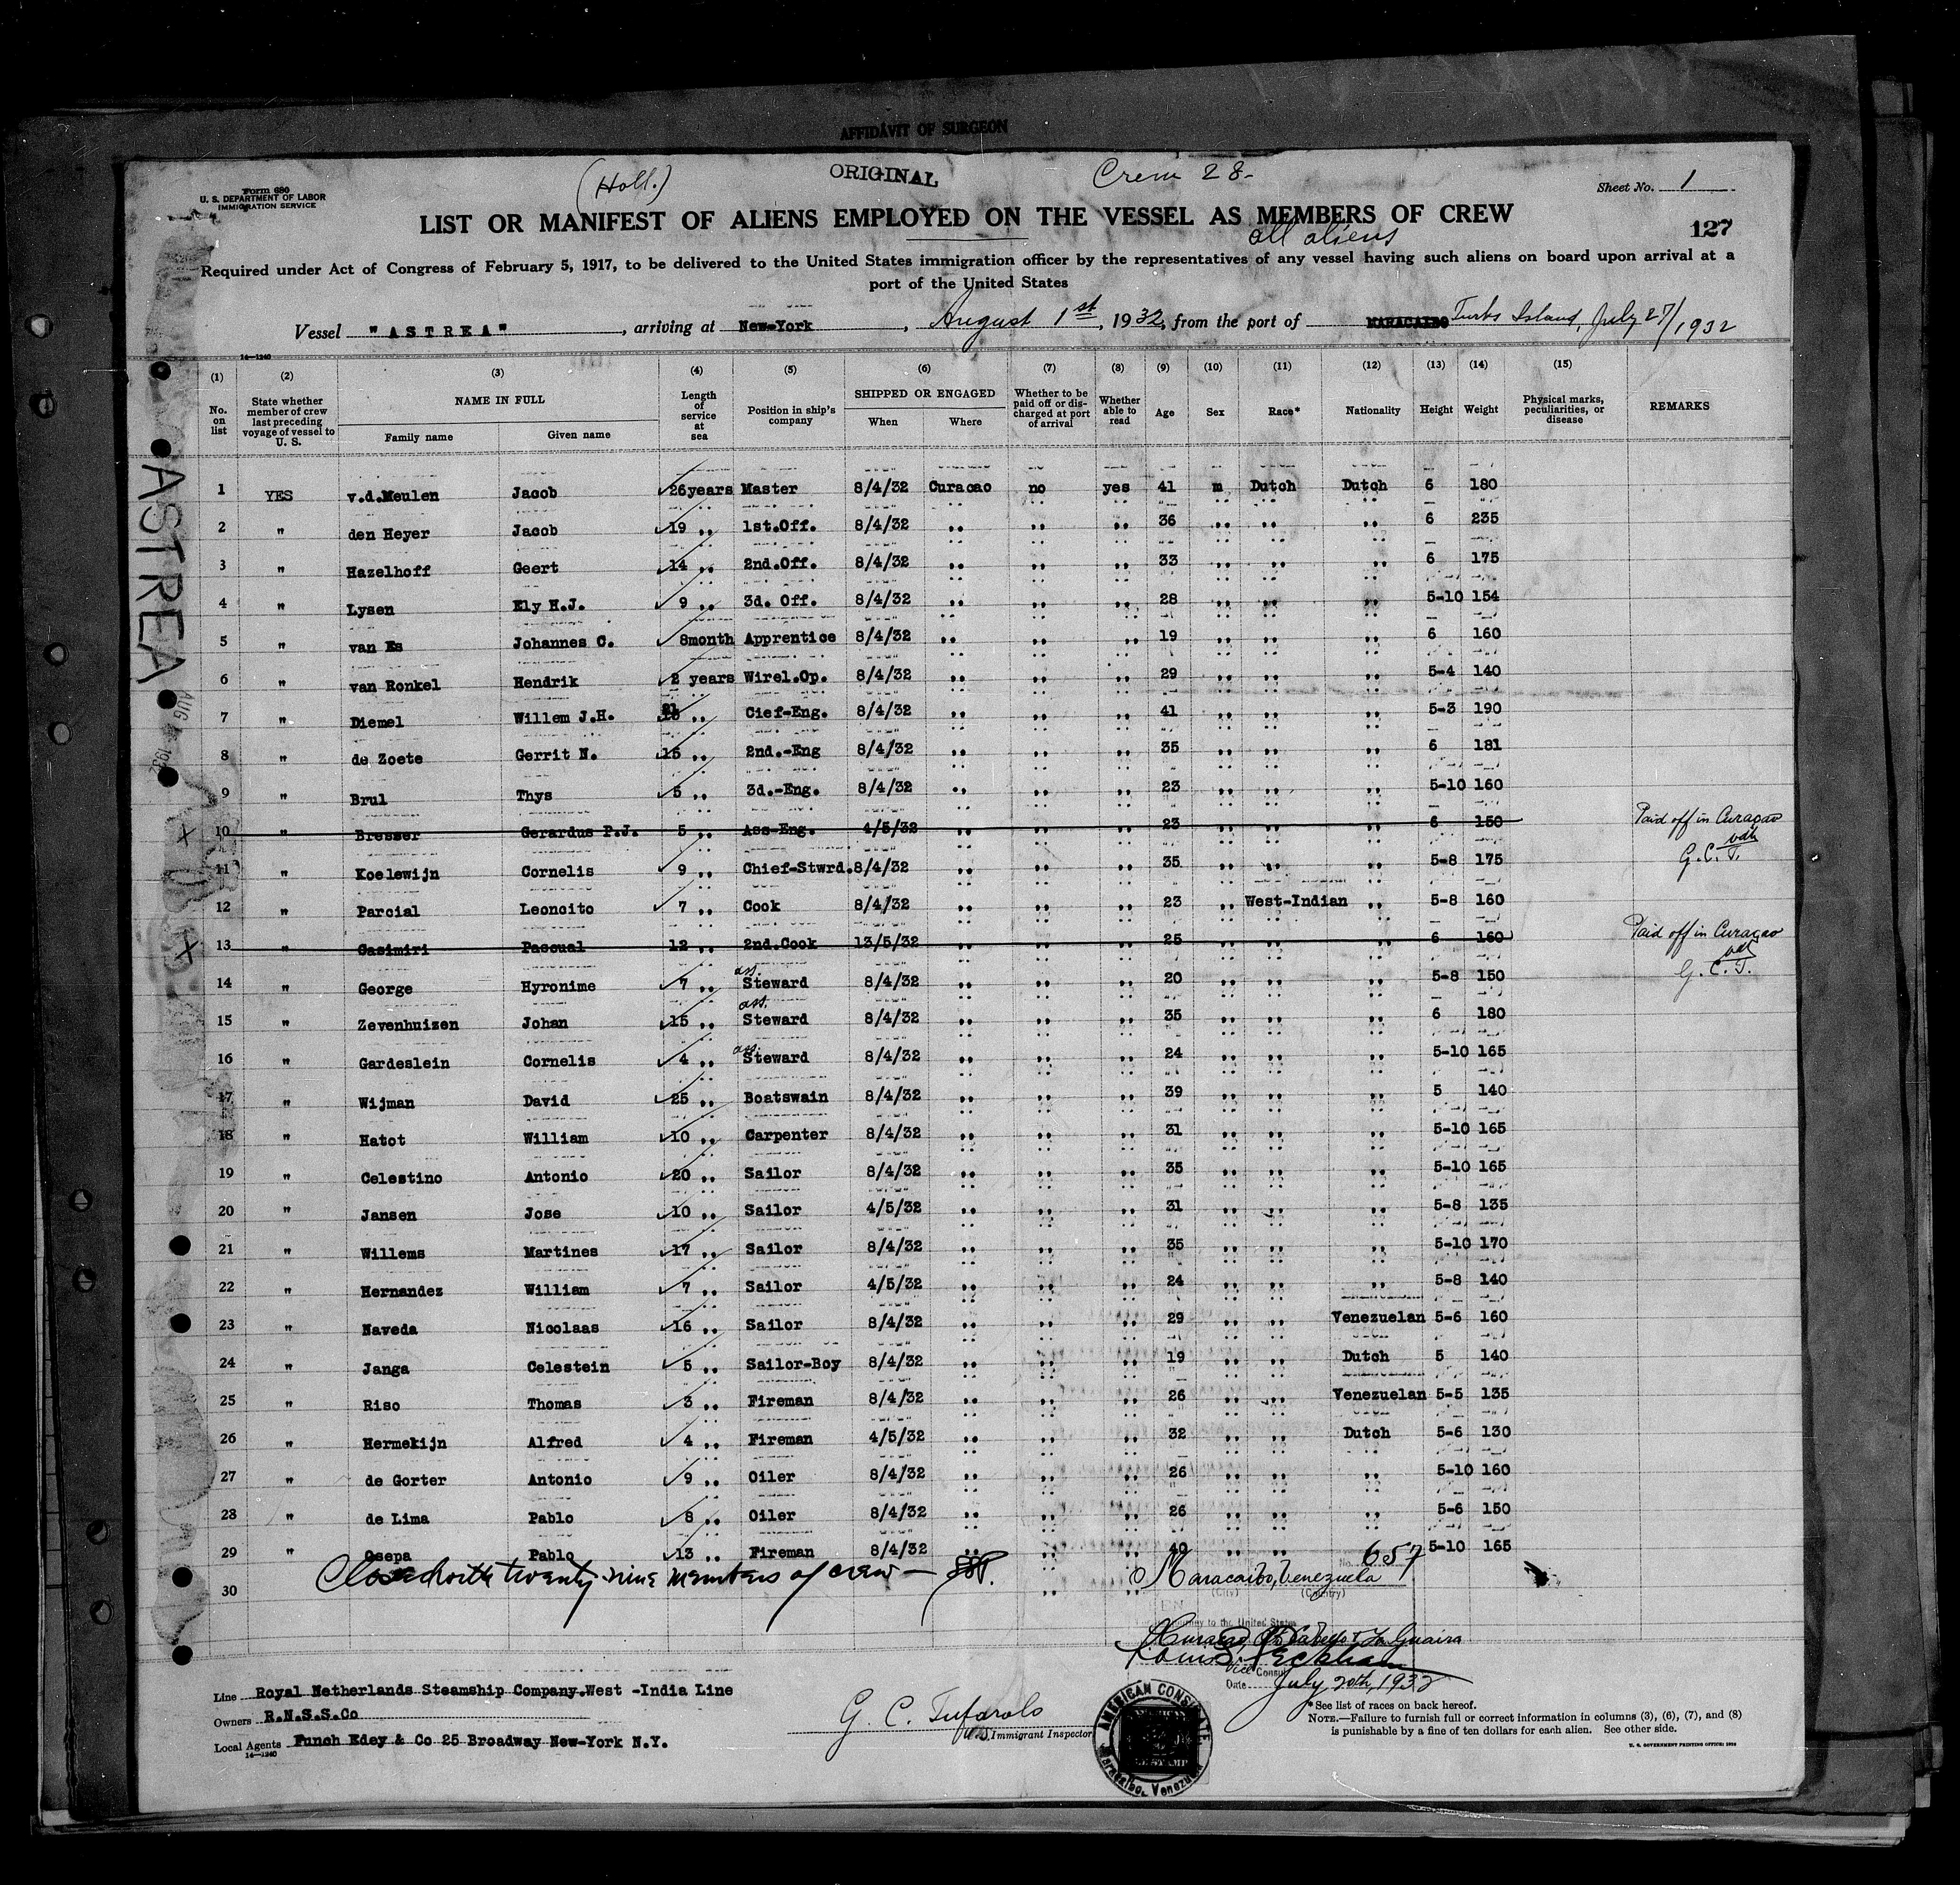 AFFIDAVIT OF SURGEON
Form 680
U. S. DEPARTMENT OF LABOR
IMMIGRATION SERVICE
(Holl.)
ORIGINAL
Crew 28-
Sheet No. 1
LIST OR MANIFEST OF ALIENS EMPLOYED ON THE VESSEL AS MEMBERS OF CREW
127
all aliens
Required under Act of Congress of February 5, 1917, to be delivered to the United States immigration officer by the representatives of any vessel having such aliens on board upon arrival at a
port of the United States
Vessel "ASTREA", arriving at New-York, August 1st, 1932, from the port of MARACAIBO Turks Island, July 27/1932
14—1240
(1) (2) (3) (4) (5) (6) (7) (8) (9) (10) (11) (12) (13) (14) (15)
No. on list
State whether member of crew last preceding voyage of vessel to U. S.
NAME IN FULL
Family name Given name
Length of service at sea
Position in ship's company
SHIPPED OR ENGAGED
When Where
Whether to be paid off or discharged at port of arrival
Whether able to read
Age Sex Race* Nationality Height Weight
Physical marks, peculiarities, or disease
REMARKS
ASTREA
AUG 1 1932
1 YES v.d.Meulen Jacob 26years Master 8/4/32 Curacao no yes 41 m Dutch Dutch 6 180
2 " den Heyer Jacob 19 ,, 1st.Off. 8/4/32 ,, ,, ,, 36 ,, ,, ,, 6 235
3 " Hazelhoff Geert 14 ,, 2nd.Off. 8/4/32 ,, ,, ,, 33 ,, ,, ,, 6 175
4 " Lysen Ely H.J. 9 ,, 3d. Off. 8/4/32 ,, ,, ,, 28 ,, ,, ,, 5-10 154
5 " van Es Johannes C. 8month Apprentice 8/4/32 ,, ,, ,, 19 ,, ,, ,, 6 160
6 " van Ronkel Hendrik 2 years Wirel.Op. 8/4/32 ,, ,, ,, 29 ,, ,, ,, 5-4 140
7 " Diemel Willem J.H. 21 ,, Cief-Eng. 8/4/32 ,, ,, ,, 41 ,, ,, ,, 5-3 190
8 " de Zoete Gerrit N. 15 ,, 2nd.-Eng 8/4/32 ,, ,, ,, 35 ,, ,, ,, 6 181
9 " Brul Thys 5 ,, 3d.-Eng. 8/4/32 ,, ,, ,, 23 ,, ,, ,, 5-10 160
X 10 " Bresser Gerardus P.J. 5 ,, Ass-Eng. 4/5/32 ,, ,, ,, 23 ,, ,, ,, 6 150 Paid off in Curaçao
G.C.T.
11 " Koelewijn Cornelis 9 ,, Chief-Stwrd. 8/4/32 ,, ,, ,, 35 ,, ,, ,, 5-8 175
12 " Parcial Leoncito 7 ,, Cook 8/4/32 ,, ,, ,, 23 ,, West-Indian ,, 5-8 160
X 13 " Casimiri Pascual 12 ,, 2nd.Cook 13/5/32 ,, ,, ,, 25 ,, ,, ,, 6 160 Paid off in Curaçao
G.C.T.
14 " George Hyronime 7 ,, ass. Steward 8/4/32 ,, ,, ,, 20 ,, ,, ,, 5-8 150
15 " Zevenhuizen Johan 15 ,, ass. Steward 8/4/32 ,, ,, ,, 35 ,, ,, ,, 6 180
16 " Gardeslein Cornelis 4 ,, ass. Steward 8/4/32 ,, ,, ,, 24 ,, ,, ,, 5-10 165
17 " Wijman David 25 ,, Boatswain 8/4/32 ,, ,, ,, 39 ,, ,, ,, 5 140
18 " Hatot William 10 ,, Carpenter 8/4/32 ,, ,, ,, 31 ,, ,, ,, 5-10 165
19 " Celestino Antonio 20 ,, Sailor 8/4/32 ,, ,, ,, 35 ,, ,, ,, 5-10 165
20 " Jansen Jose 10 ,, Sailor 4/5/32 ,, ,, ,, 31 ,, ,, ,, 5-8 135
21 " Willems Martines 17 ,, Sailor 8/4/32 ,, ,, ,, 35 ,, ,, ,, 5-10 170
22 " Hernandez William 7 ,, Sailor 4/5/32 ,, ,, ,, 24 ,, ,, ,, 5-8 140
23 " Naveda Nicolaas 16 ,, Sailor 8/4/32 ,, ,, ,, 29 ,, ,, Venezuelan 5-6 160
24 " Janga Celestein 5 ,, Sailor-Boy 8/4/32 ,, ,, ,, 19 ,, ,, Dutch 5 140
25 " Riso Thomas 3 ,, Fireman 8/4/32 ,, ,, ,, 26 ,, ,, Venezuelan 5-5 135
26 " Hermekijn Alfred 4 ,, Fireman 4/5/32 ,, ,, ,, 32 ,, ,, Dutch 5-6 130
27 " de Gorter Antonio 9 ,, Oiler 8/4/32 ,, ,, ,, 26 ,, ,, ,, 5-10 160
28 " de Lima Pablo 8 ,, Oiler 8/4/32 ,, ,, ,, 26 ,, ,, ,, 5-6 150
29 " Osepa Pablo 13 ,, Fireman 8/4/32 ,, ,, ,, 40 ,, ,, 5-10 165
No. 657
Closed with twenty-nine members of crew —
30 ,, ,, Maracaibo, Venezuela
(City) (Country)
to the United States
Curaçao, Pto Cabello & La Guaira
Louis S. Peckham
Vice Consul
Date July 20th, 1932
Line Royal Netherlands Steamship Company.West -India Line
Owners R.N.S.S.Co
Local Agents Funch Edey & Co 25 Broadway New-York N.Y.
14—1240
G. C. Tufarolo
Immigrant Inspector
AMERICAN CONSULATE
Maracaibo, Venezuela
*See list of races on back hereof.
NOTE.—Failure to furnish full or correct information in columns (3), (6), (7), and (8)
is punishable by a fine of ten dollars for each alien. See other side.
U. S. GOVERNMENT PRINTING OFFICE